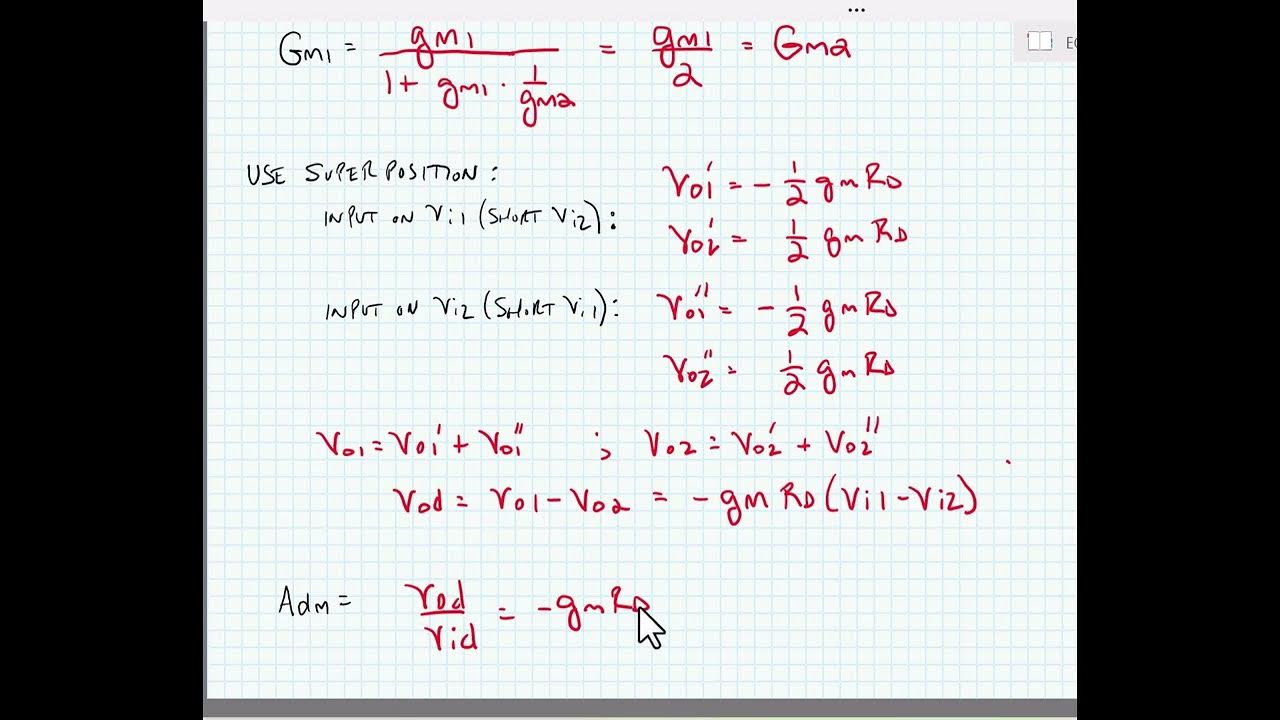 ...
Gm1 = gm1 / (1 + gm1 · 1/gm2) = gm1/2 = Gm2
USE SUPERPOSITION:
INPUT ON Vi1 (SHORT Vi2): Vo1' = - 1/2 gm RD
Vo2' = 1/2 gm RD
INPUT ON Vi2 (SHORT Vi1): Vo1'' = - 1/2 gm RD
Vo2'' = 1/2 gm RD
Vo1 = Vo1' + Vo1'' ; Vo2 = Vo2' + Vo2''
Vod = Vo1 - Vo2 = - gm RD (Vi1 - Vi2)
Adm = Vod/Vid = - gm RD